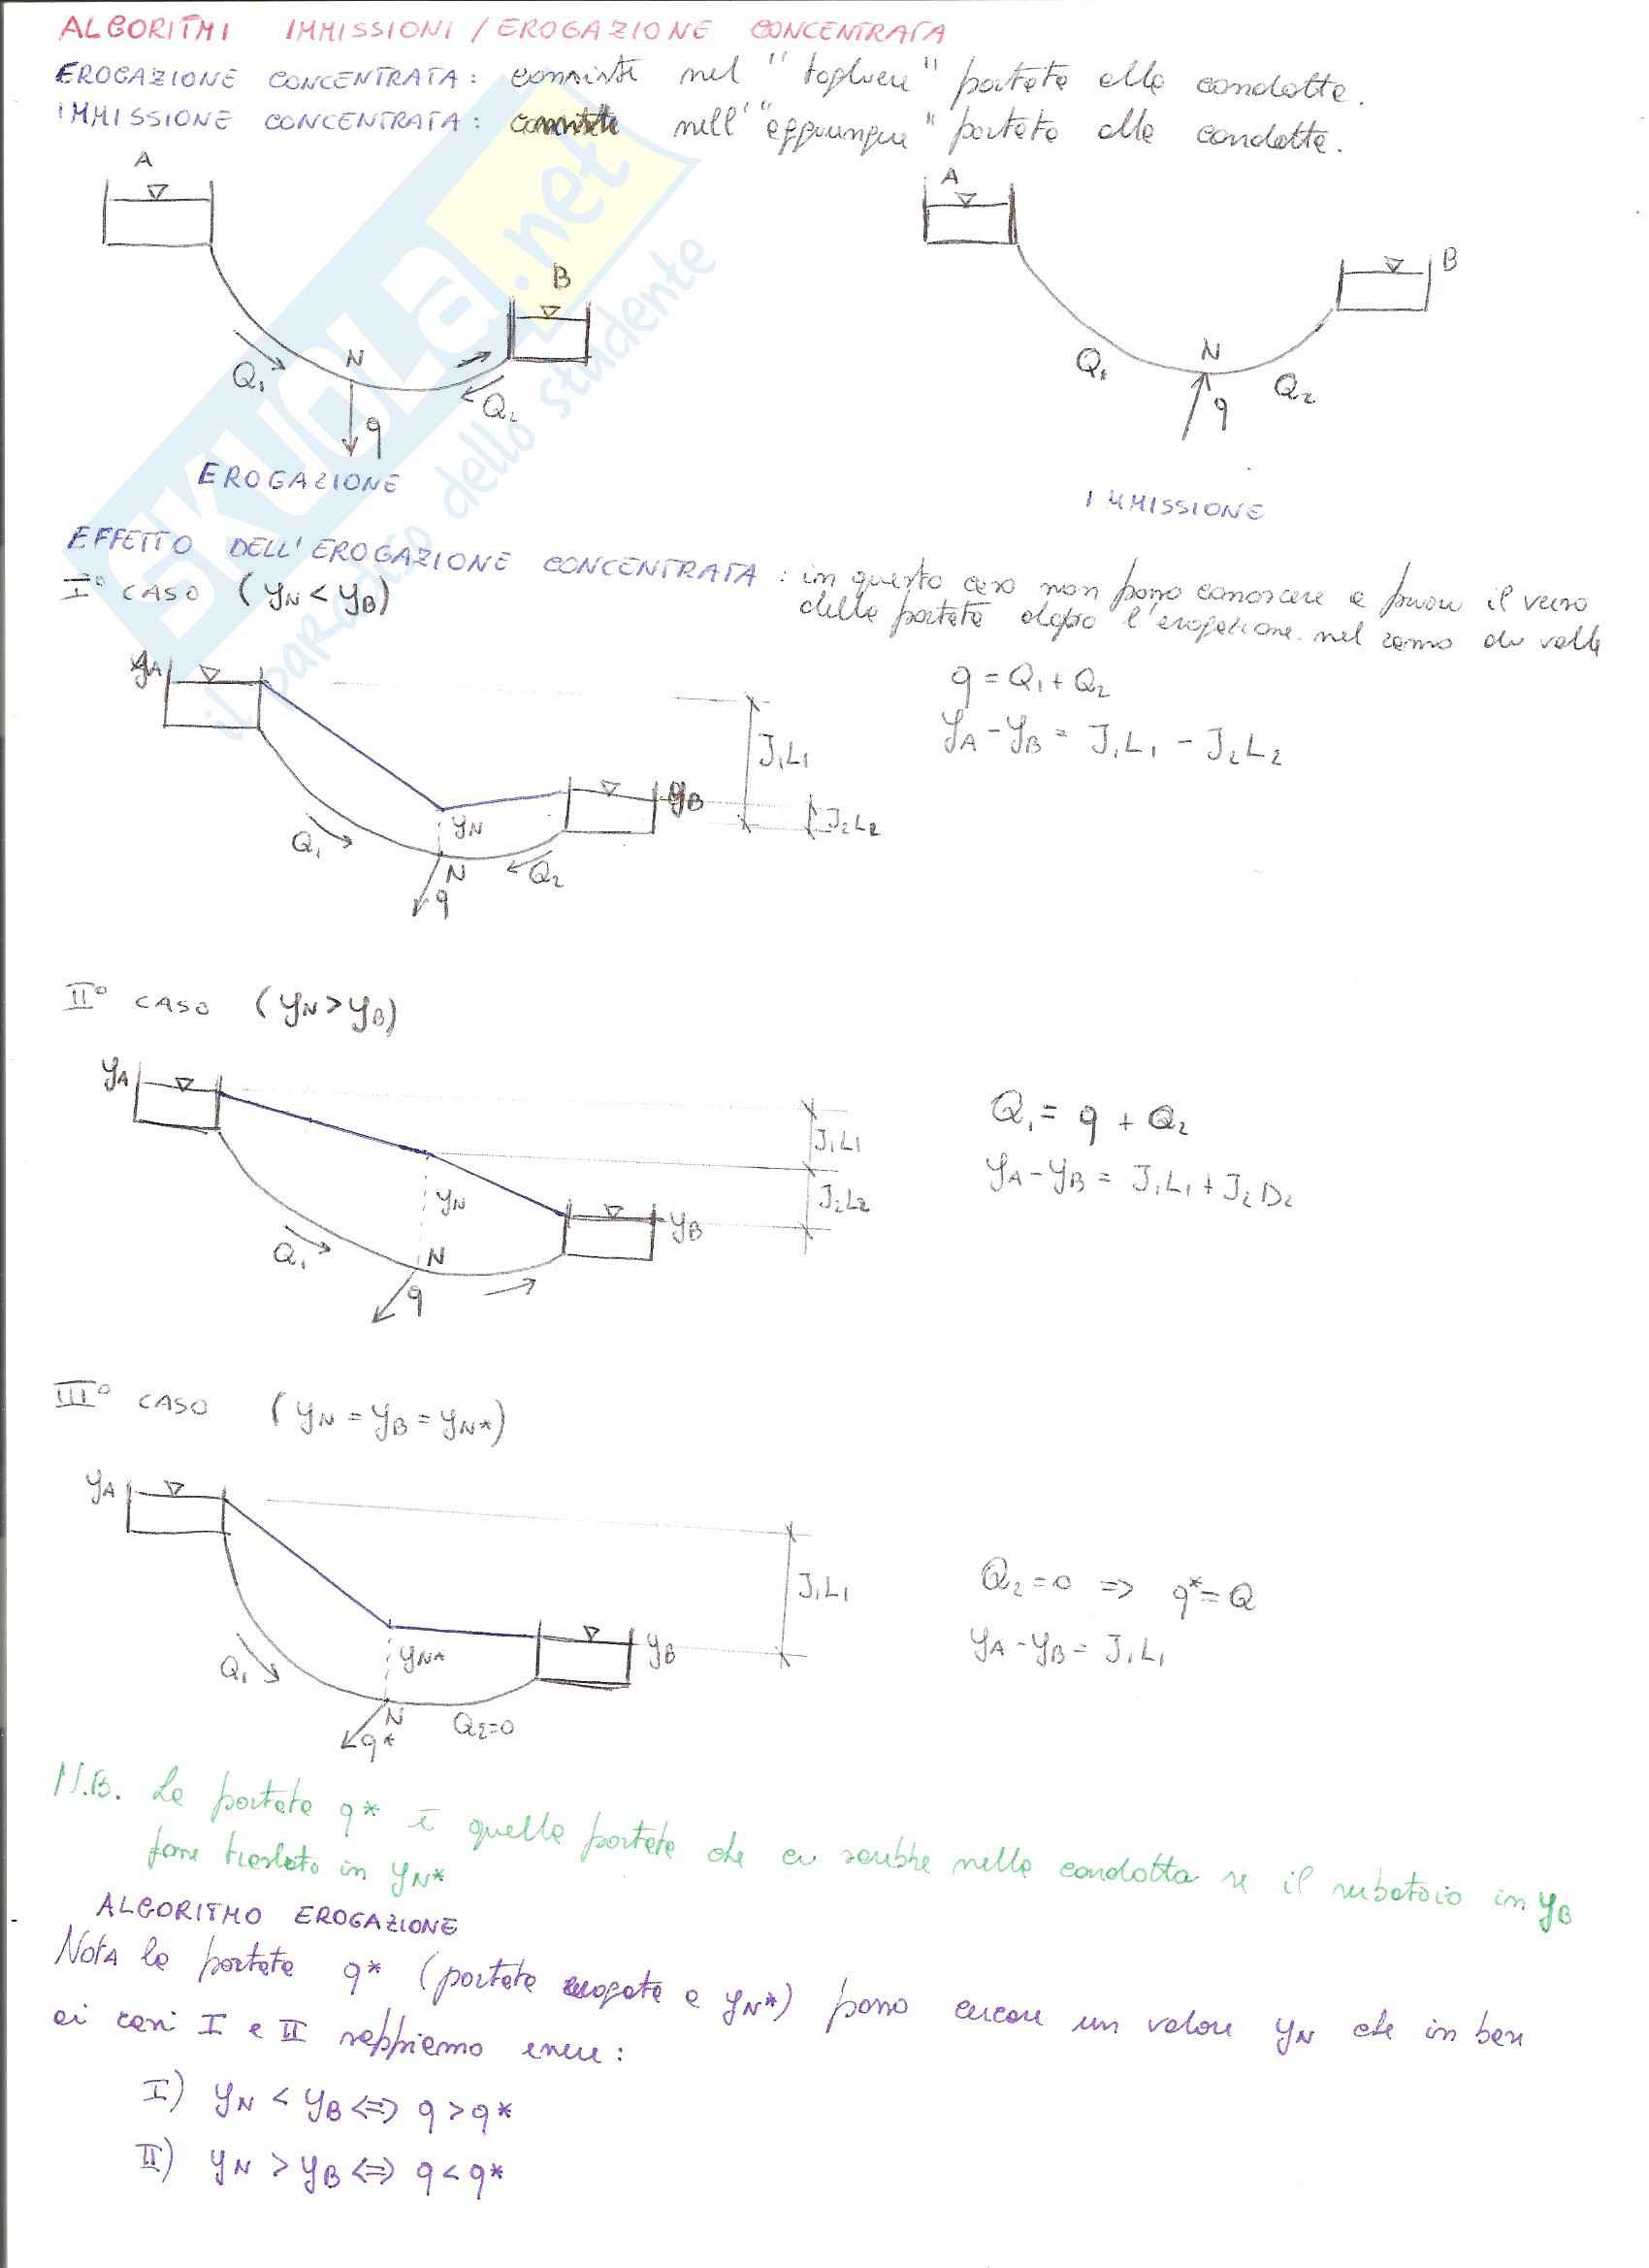 ALGORITMI IMMISSIONI / EROGAZIONE CONCENTRATA
EROGAZIONE CONCENTRATA: consiste nel "togliere" portata alla condotta.
IMMISSIONE CONCENTRATA: consiste nell'"aggiungere" portata alla condotta.
A
B
Q₁
N
Q₂
q
EROGAZIONE
A
B
Q₁
N
Q₂
q
IMMISSIONE
EFFETTO DELL'EROGAZIONE CONCENTRATA: in questo caso non posso conoscere a priori il verso
della portata dopo l'erogazione nel ramo di valle
I° CASO (yN < yB)
yA
J₁L₁
yB
J₂L₂
yN
Q₁
N
Q₂
q
q = Q₁ + Q₂
yA - yB = J₁L₁ - J₂L₂
II° CASO (yN > yB)
yA
J₁L₁
J₂L₂
yN
yB
Q₁
N
q
Q₁ = q + Q₂
yA - yB = J₁L₁ + J₂D₂
III° CASO (yN = yB = yN*)
yA
J₁L₁
yN*
yB
Q₁
N
Q₂=0
q*
Q₂ = 0 => q* = Q
yA - yB = J₁L₁
N.B. La portata q* è quella portata che ci sarebbe nella condotta se il serbatoio in yB
fosse traslato in yN*
ALGORITMO EROGAZIONE
Nota la portata q* (portata erogata a yN*) posso cercare un valore yN che in base
ai casi I e II sappiamo essere:
I) yN < yB <=> q > q*
II) yN > yB <=> q < q*
SKUOLA.net
il paradiso dello studente